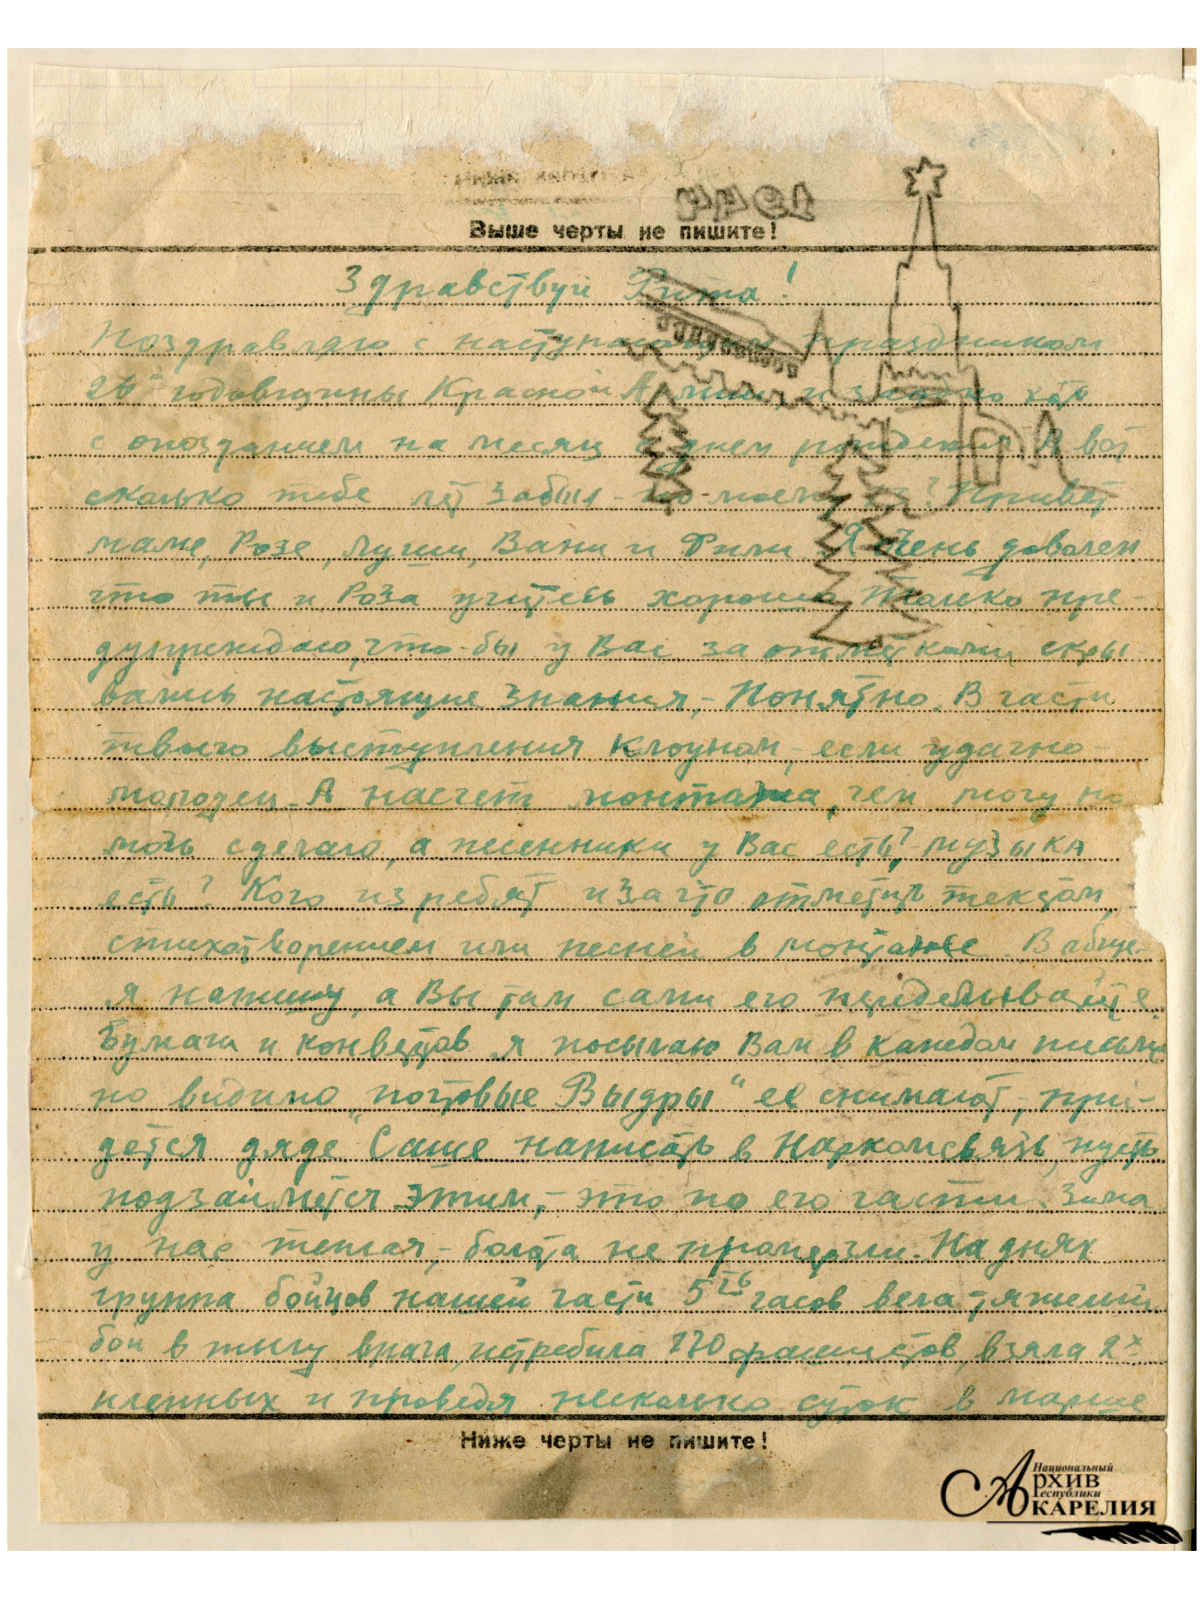 1944
Выше черты не пишите!
Здравствуй Рита!
Поздравляю с наступающим праздником
26й годовщины Красной Армии и заодно хотя
с опозданием на месяц с днем рождения. А вот
сколько тебе лет забыл - по-моему ? Привет
маме, Розе, Люции, Вани и Фили. Я очень доволен
что ты и Роза учитесь хорошо. Только пре-
дупреждаю, что-бы у Вас за отметками скры
вались настоящие знания, - Понятно. В части
твоего выступления клоуном, - если удачно -
молодец. А насчет монтажа, чем могу по
мочь сделаю, а песенники у Вас есть? - музыка
есть? Кого из ребят и за что отметить текстом,
стихотворением или песней в монтаже. В общем
я напишу, а Вы там сами его переделывайте.
Бумаги и конвертов я посылаю Вам в каждом письме
но видимо "почтовые Выдры" её снимают, - при-
дётся дяде Саше написать в Наркомсвязь, пусть
подзаймется этим, - это по его части. Зима
у нас теплая, - болота не промерзли. На днях
группа бойцов нашей части 5ть часов вела тяжелый
бой в тылу врага, истребила 170 фашистов, взяла 2х
пленных и проведя несколько суток в марше
Ниже черты не пишите!
Национальный
Архив
Республики
Карелия